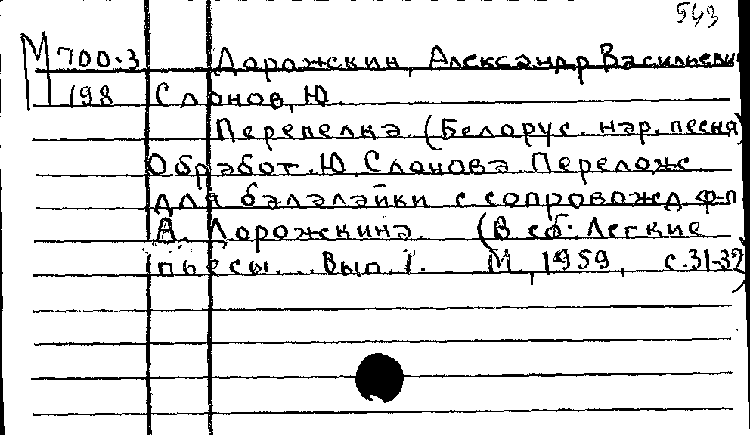 543
М 700-3 Дорожкин, Александр Васильевич
198 Слонов, Ю.
Перепелка (Белорус. нар. песня)
Обработ. Ю. Слонова Перелож.
для балалайки с сопровожд. ф-п.
А. Дорожкина. (В сб: Легкие
пьесы. Вып. 1. М., 1959, с. 31-32)